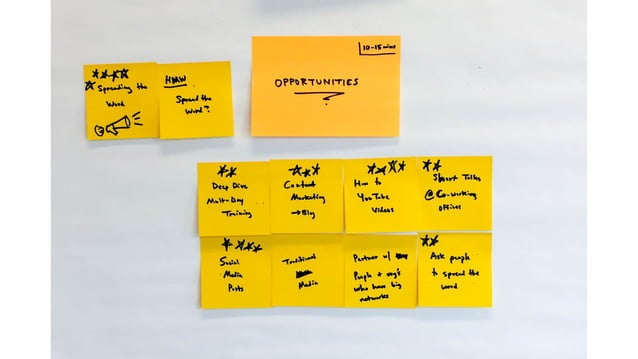 Spreading the
Word
HMW
Spread the
Word?
10-15 mins
OPPORTUNITIES
Deep Dive
Multi-Day
Training
Content
Marketing
→ Blog
How to
YouTube
Videos
Short Talks
@ Co-working
offices
Social
Media
Posts
Traditional
Media
Partner w/
People + org's
who have big
networks
Ask people
to spread the
word